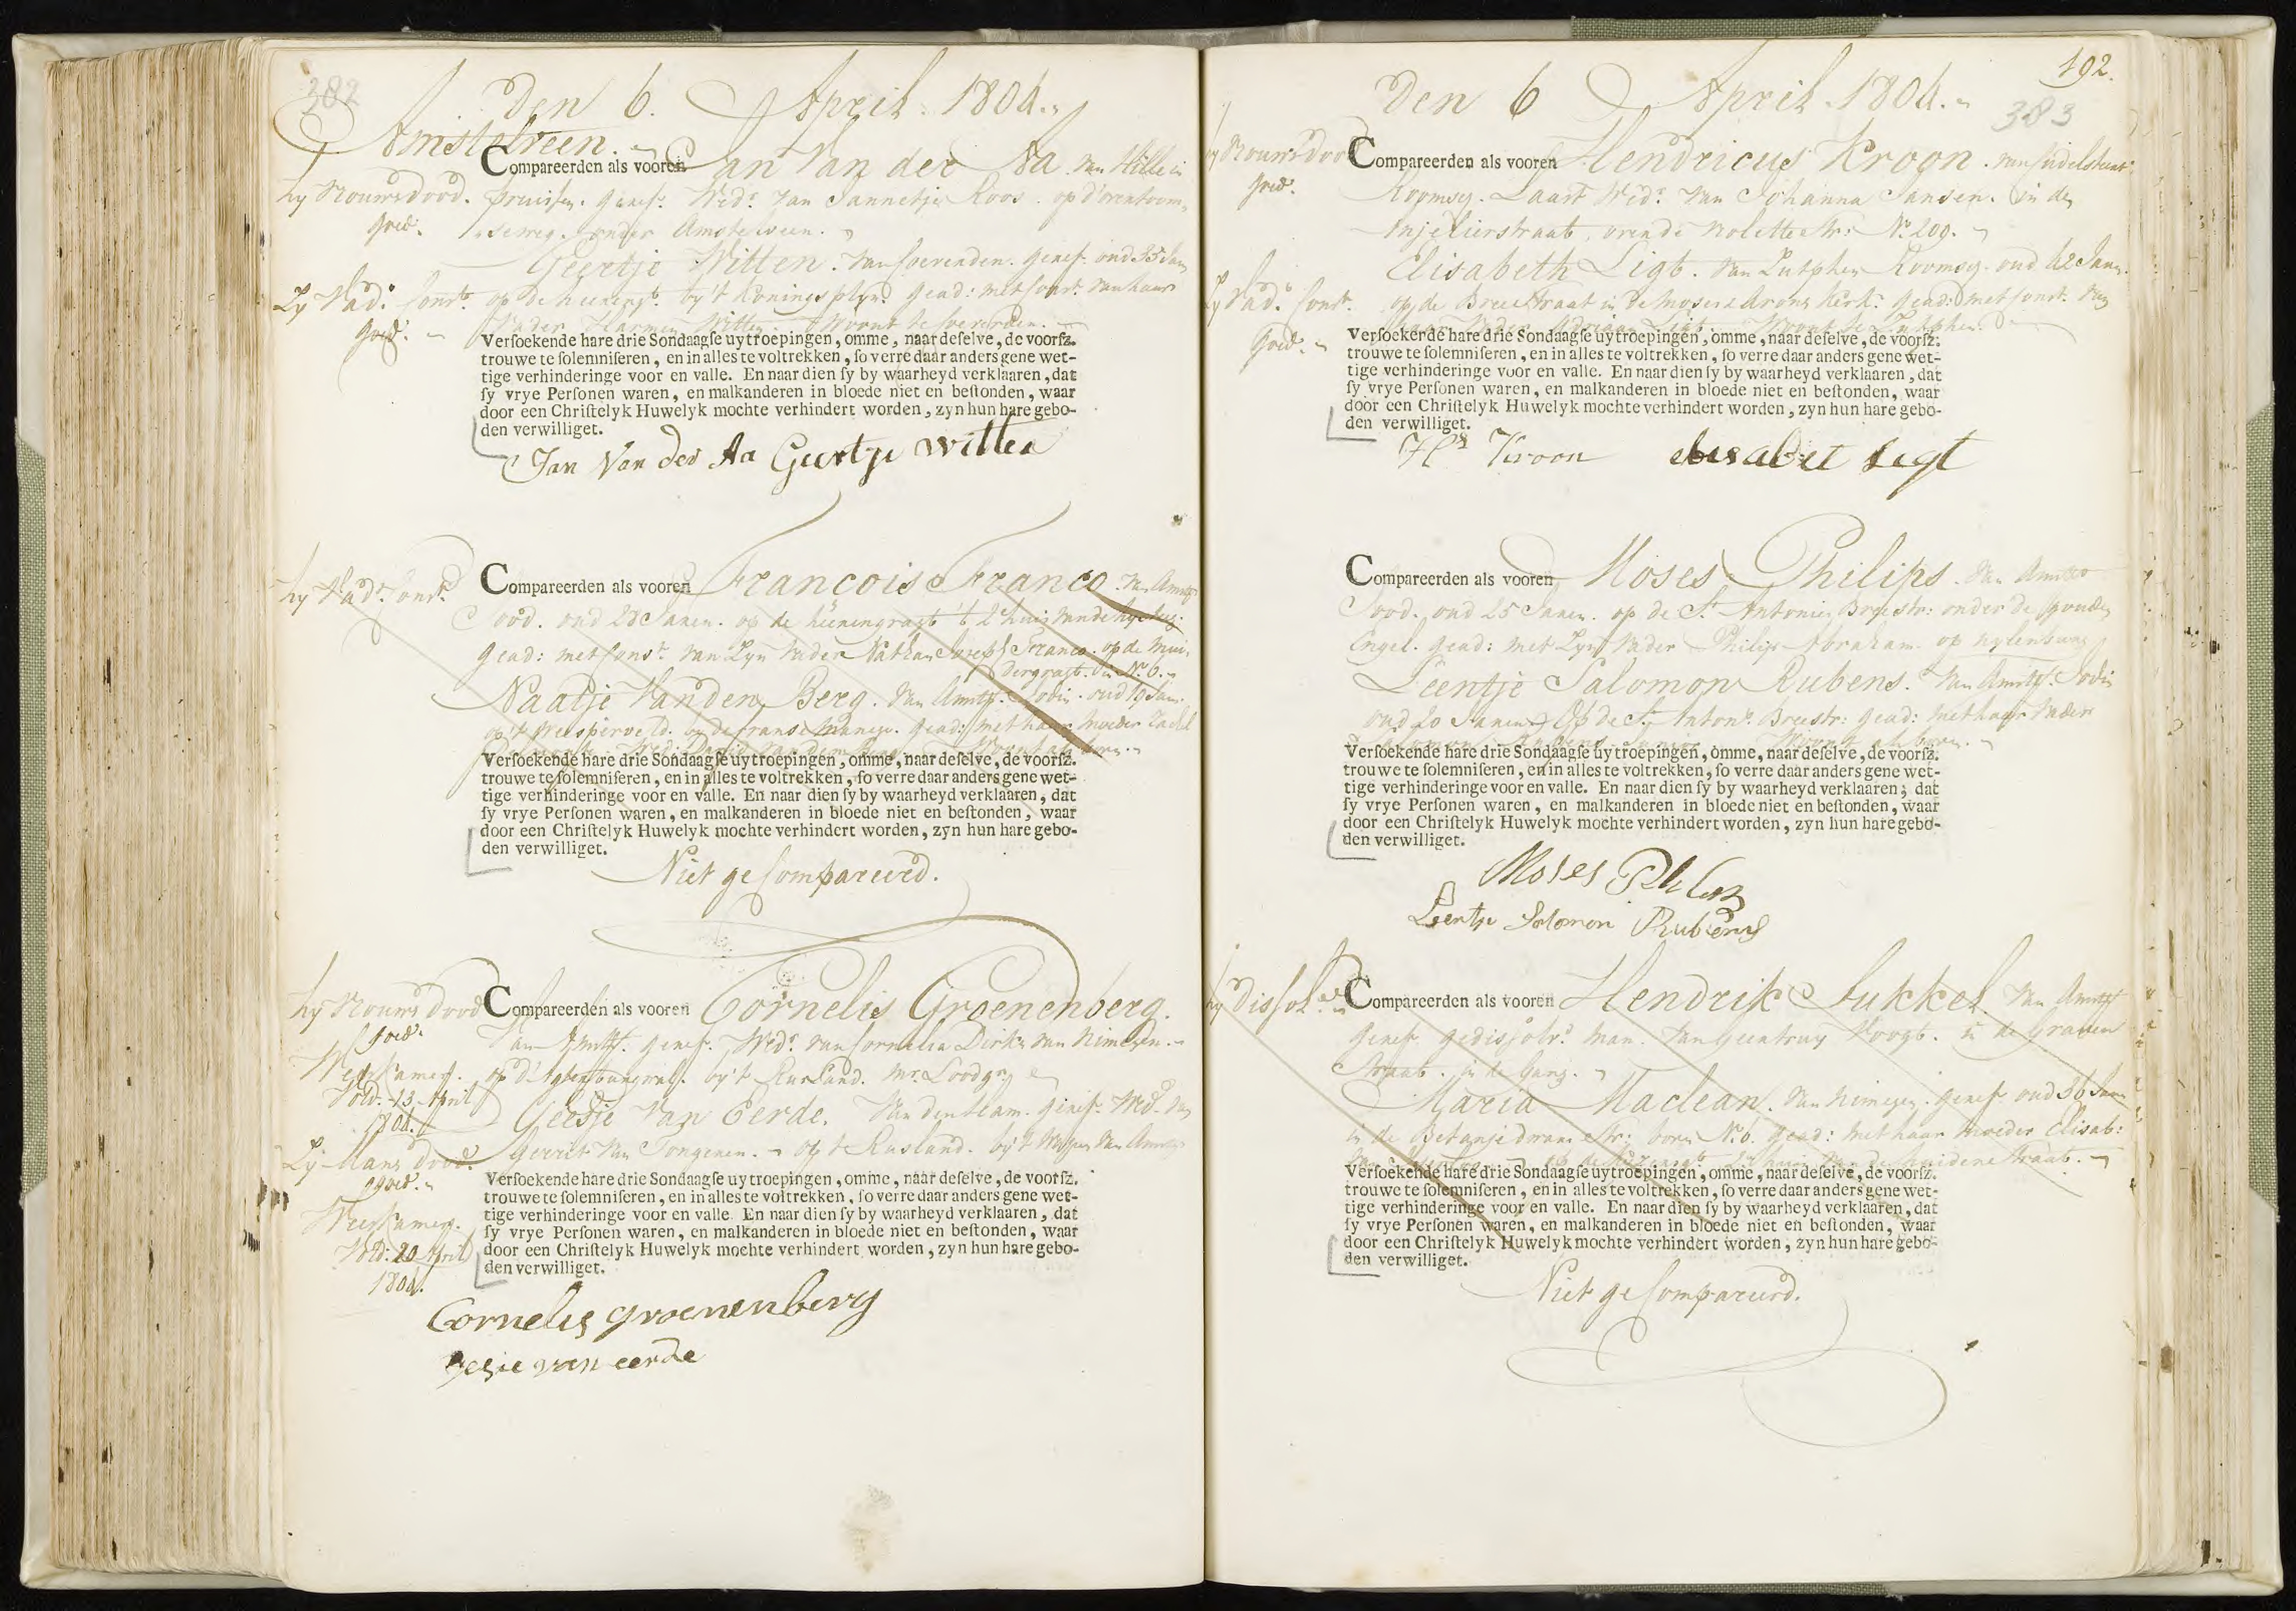 382
Den 6. April 1804.
Amstelveen.
Compareerden als vooren Jan Van der Aa. van Hille in
hy vrouws dood. pruissen. geref. Wedr. van Jannetje Roos. op d'
goed. seweg. onder Amstelveen.
Geertje Witten. van Coevorden. geref. oud 35 Jaar
Zy Vad. Const. op de by 't Koningsplyn. gead: met Const. van haar
goed. Vader Harmen Witten. woont te Coevorden.
Versoekende hare drie Sondaagse uytroepingen, omme, naar deselve, de voorsz.
trouwe te solemniseren, en in alles te voltrekken, so verre daar anders gene wet-
tige verhinderinge voor en valle. En naar dien sy by waarheyd verklaaren, dat
sy vrye Personen waren, en malkanderen in bloede niet en bestonden, waar
door een Christelyk Huwelyk mochte verhindert worden, zyn hun hare gebo-
den verwilliget.
Jan Van der Aa Geertje Witten
hy Vadr. Const. Compareerden als vooren Francois Franco. van Amst.
Jood. oud 28 Jaaren. op de heerengragt 't 2e huis van de
gead: met Const. van Zyn Vader Nathan Joseph Franco. op de Mui-
dergragt. in No. 6.
Naatje Van den Berg. van Amst. Jodin. oud 19 Jaar.
op 't Weesperveld. by de franse manege. gead: met haar moeder Rachel
Versoekende hare drie Sondaagse uytroepingen, omme, naar deselve, de voorsz.
trouwe te solemniseren, en in alles te voltrekken, so verre daar anders gene wet-
tige verhinderinge voor en valle. En naar dien sy by waarheyd verklaaren, dat
sy vrye Personen waren, en malkanderen in bloede niet en bestonden, waar
door een Christelyk Huwelyk mochte verhindert worden, zyn hun hare gebo-
den verwilliget.
Niet geCompareerd.
hy Vrouws dood Compareerden als vooren Cornelis Groenenberg.
goed. van Amst. geref. Wedr. van Cornelia Dirks van Nimegen.
Weeskamer. op d' by 't Rusland. Mr. Loodgr.
Vold. 13 April Geesje Van Eerde. van den Ham. geref. Wed. van
1804.
Zy Mans dood. Gerrit van Tongeren. op 't Rusland. by 't Wapen van Amst.
goed.
Weeskamer.
Vold: 20 April
1804.
Versoekende hare drie Sondaagse uytroepingen, omme, naar deselve, de voorsz.
trouwe te solemniseren, en in alles te voltrekken, so verre daar anders gene wet-
tige verhinderinge voor en valle. En naar dien sy by waarheyd verklaaren, dat
sy vrye Personen waren, en malkanderen in bloede niet en bestonden, waar
door een Christelyk Huwelyk mochte verhindert worden, zyn hun hare gebo-
den verwilliget.
Cornelis groenenberg
gesie van eerde
192.
383
Den 6 April 1804.
hy Vrouws dood Compareerden als vooren Hendricus Kroon.
goed. Roomsg. Laast Wedr. van Johanna Jansen. in de
Anjelierstraat, over de Violettestr: No. 209.
Elisabeth Ligt. van Zutphen Roomsg. oud 42 Jaar.
Zy Vad. Const. op de Breestraat in de Moses en Arons Kerk. gead: met Const. van
goed. haar Vader Ligt. Woont te Zutphen.
Versoekende hare drie Sondaagse uytroepingen, omme, naar deselve, de voorsz.
trouwe te solemniseren, en in alles te voltrekken, so verre daar anders gene wet-
tige verhinderinge voor en valle. En naar dien sy by waarheyd verklaaren, dat
sy vrye Personen waren, en malkanderen in bloede niet en bestonden, waar
door een Christelyk Huwelyk mochte verhindert worden, zyn hun hare gebo-
den verwilliget.
Hs Kroon elesabet Legt
Compareerden als vooren Moses Philips. van Amst.
Jood. oud 25 Jaaren. op de St. Antonies Breestr: onder de Goude
Engel. gead: met Zyn Vader Philip Abraham. op uylenburg
Leentje Salomon Rubens. van Amst. Jodin
oud 20 Jaaren. Op de St. Anton. Breestr: gead: met haar Vader
Salomon Rubens. Woont als boven.
Versoekende hare drie Sondaagse uytroepingen, omme, naar deselve, de voorsz.
trouwe te solemniseren, en in alles te voltrekken, so verre daar anders gene wet-
tige verhinderinge voor en valle. En naar dien sy by waarheyd verklaaren, dat
sy vrye Personen waren, en malkanderen in bloede niet en bestonden, waar
door een Christelyk Huwelyk mochte verhindert worden, zyn hun hare gebo-
den verwilliget.
Moses Philips
Leentje Solomon Rubens
hy dissol. Compareerden als vooren Hendrik Sukkel. van Amst
geref. gedissolv. man. van Geertruy Voogt. in de Graven
straat. in de Gang.
Maria Maclean. van Nimegen. geref. oud 36 Jaar
in de Betanjedwarsstr: boven No. 6. gead: met haar moeder Elisab:
Versoekende hare drie Sondaagse uytroepingen, omme, naar deselve, de voorsz.
trouwe te solemniseren, en in alles te voltrekken, so verre daar anders gene wet-
tige verhinderinge voor en valle. En naar dien sy by waarheyd verklaaren, dat
sy vrye Personen waren, en malkanderen in bloede niet en bestonden, waar
door een Christelyk Huwelyk mochte verhindert worden, zyn hun hare gebo-
den verwilliget.
Niet geCompareerd.